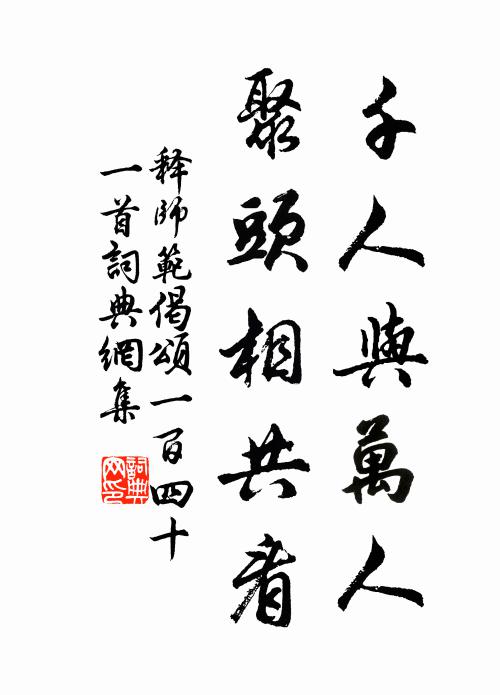 千人與萬人
聚頭相共看
释師範偈頌一百四十
一首詞典網集
詞典
网印